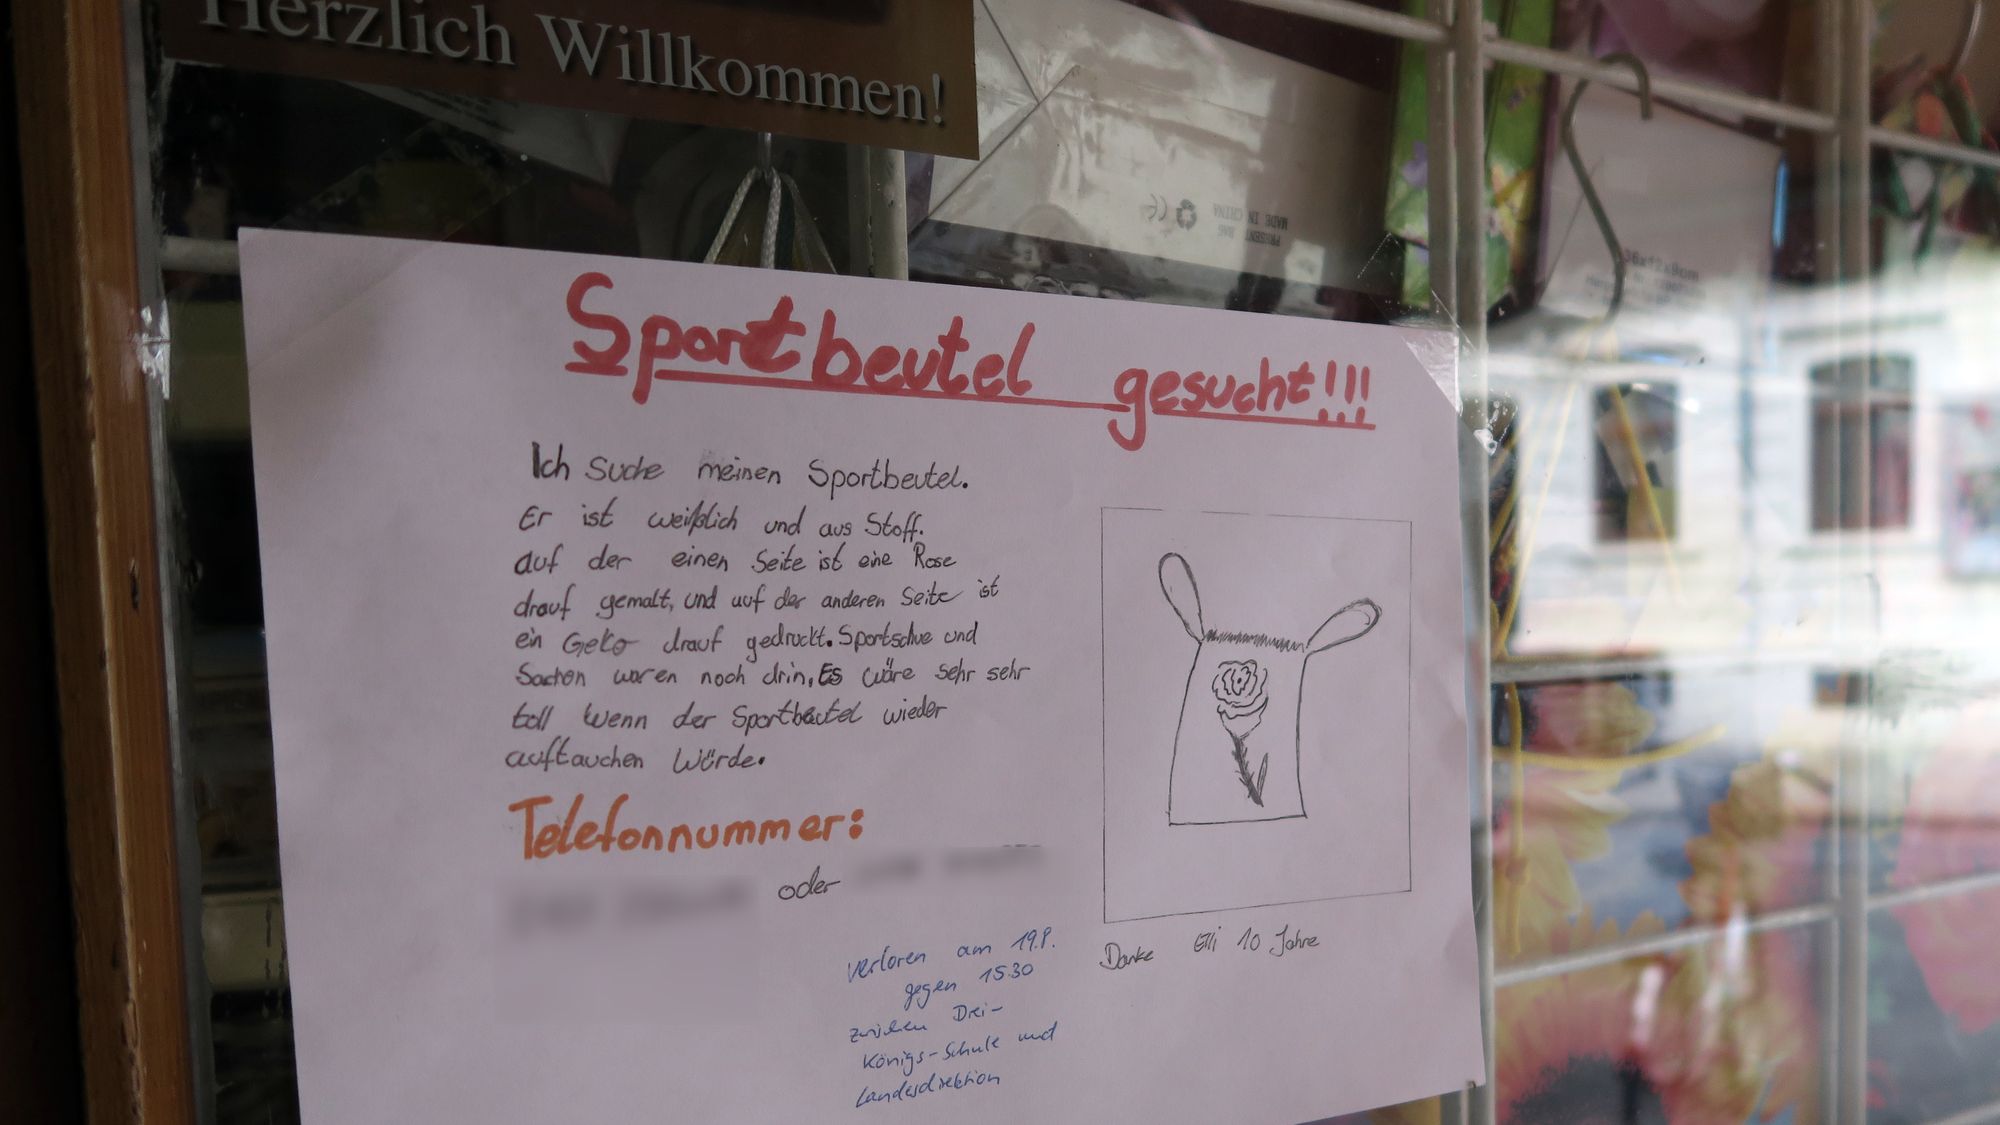 Herzlich Willkommen!
MADE IN CHINA
PRESENT BAG
36x12x9cm
Sportbeutel gesucht!!!
Ich suche meinen Sportbeutel.
Er ist weißlich und aus Stoff.
auf der einen Seite ist eine Rose
drauf gemalt, und auf der anderen Seite ist
ein Geko drauf gedruckt. Sportschue und
Sachen waren noch drin, Es wäre sehr sehr
toll wenn der Sportbeutel wieder
auftauchen würde.
Telefonnummer:
oder
verloren am 19.8.
gegen 15.30
zwischen Drei-
Königs-Schule und
Landesdirektion
Danke Elli 10 Jahre